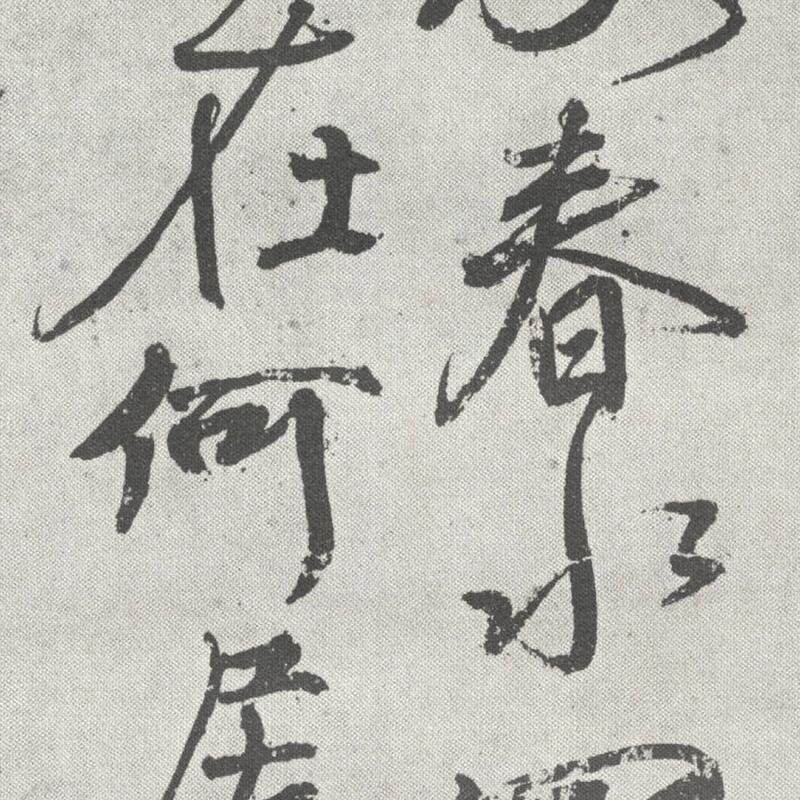 春水
在何居